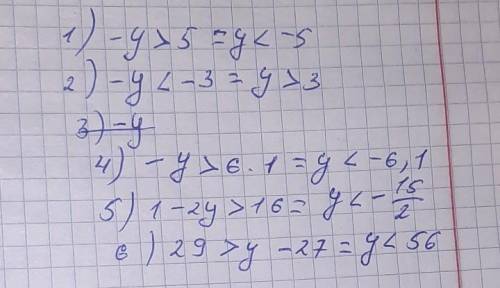 1) -y > 5 = y < -5
2) -y < -3 = y > 3
3) -y
4) -y > 6.1 = y < -6,1
5) 1-2y > 16 = y < -15/2
6) 29 > y -27 = y < 56